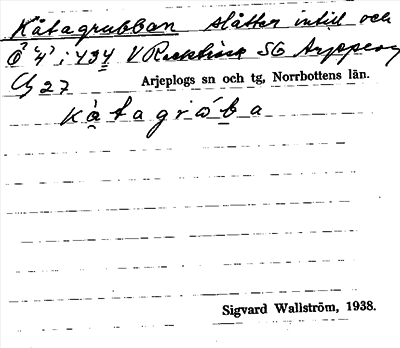 Kåtagrubban slåtter intill och
Ö "4" i 434 V Racksund SG Arjeplog
Cg 27 Arjeplogs sn och tg, Norrbottens län.
kåtagròba
Sigvard Wallström, 1938.